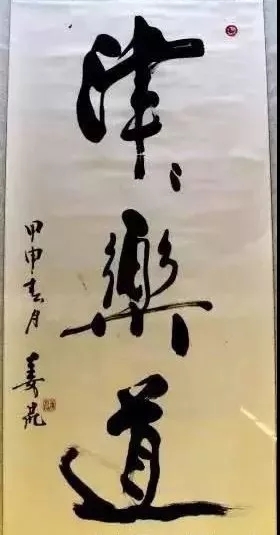 津々樂道
甲申春月 姜昆